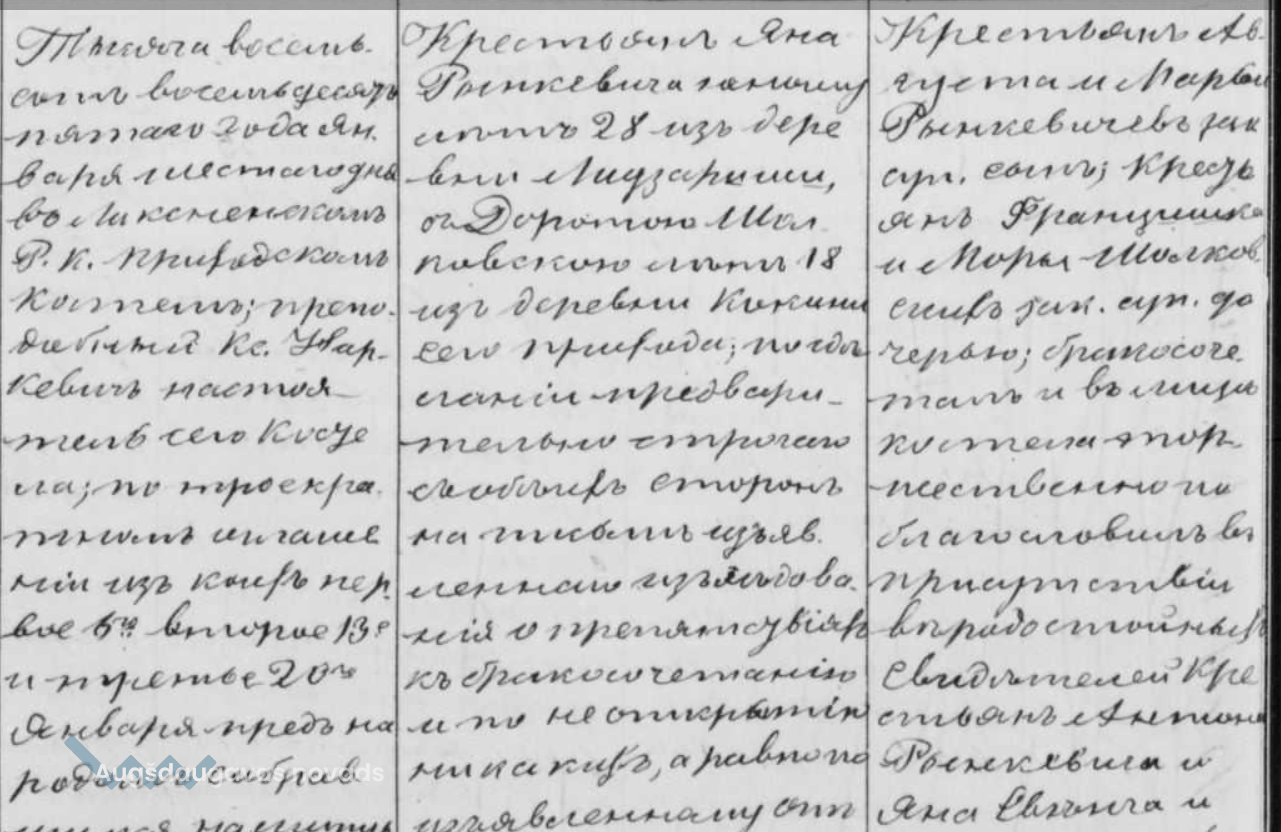 Тысяча восемь-
сотъ восемьдесятъ
пятаго года Ян.
варя шестаго дня
въ Ликсненскомъ
Р. К. приходскомъ
костелѣ; препо-
добный Кс. Нар-
кевичъ настоя-
тель сего косте
ла; по троекра.
тномъ оглаше
ніи изъ коихъ пер.
вое 6го второе 13е
и третье 20го
Января предъ на
родомъ собрав
Крестьянъ Яна
Рынкевича юношу
лѣтъ 28 изъ дере
вни
съ Доротою Шол.
ковскою лѣтъ 18
изъ деревни Кокини
сего прихода; по сдѣ
ланіи предвари-
тельно строгаго
съ обѣихъ сторонъ
на письмѣ изъяв.
леннаго изслѣдова.
нія о препятствіяхъ
къ бракосочетанію
и по неоткрытіи
никакихъ, а равно по
изъявленному отъ
Крестьянъ Ав-
густа и Марьи
Рынкевичевъ зак
суп. сынъ; Кресть
янъ Францишка
и Марьи Шолков.
скихъ зак. суп. до
черью; бракосоче
талъ и въ лицѣ
костела тор-
жественно по
благословилъ въ
присутствіи
вѣрадостойныхъ
свидѣтелей Кре
стьянъ Антона
Рынкевича и
Яна и
Augšdaugavas novads